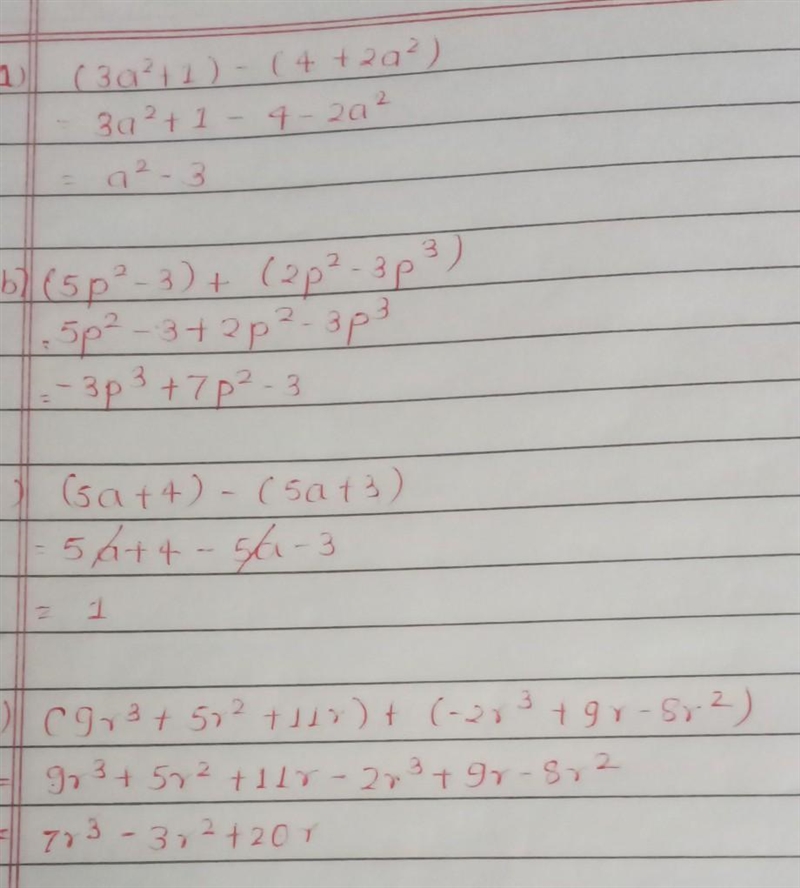 a) (3a²+1) - (4 + 2a²)
= 3a²+1 - 4 - 2a²
= a² - 3
b) (5p² - 3) + (2p² - 3p³)
= 5p² - 3 + 2p² - 3p³
= -3p³ + 7p² - 3
) (5a + 4) - (5a + 3)
= 5a + 4 - 5a - 3
= 1
) (9r³ + 5r² + 11r) + (-2r³ + 9r - 8r²)
= 9r³ + 5r² + 11r - 2r³ + 9r - 8r²
= 7r³ - 3r² + 20r